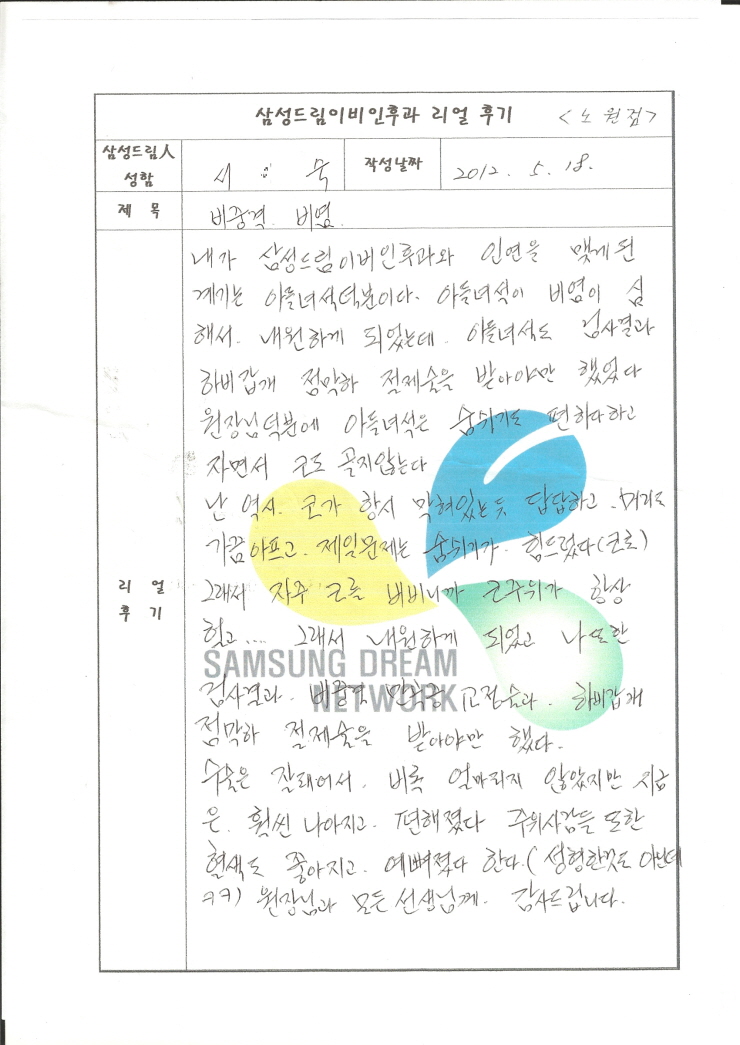 삼성드림이비인후과 리얼 후기 <노원점>
삼성드림人 성함
서 : 숙
작성날짜
2012. 5. 18.
제 목
비중격. 비염.
리 얼 후 기
내가 삼성드림이비인후과와 인연을 맺게된
계기는 아들녀석덕분이다. 아들녀석이 비염이 심
해서. 내원하게 되었는데. 아들녀석도 검사결과
하비갑개 점막하 절제술을 받아야만 했었다
원장님덕분에 아들녀석은 숨쉬기도 편하다하고
자면서 코도 골지않는다
난 역시. 코가 항시 막혀있는듯 답답하고. 머리도
가끔아프고. 제일문제는 숨쉬기가. 힘드렀다(코로)
그래서 자주 코를 비비니까 코주위가 항상
헐고.... 그래서 내원하게 되었고 나또한
검사결과. 비중격 만곡증 교정술과. 하비갑개
점막하 절제술을 받아야만 했다.
수술은 잘돼어서. 비록 얼마되지 않았지만 지금
은. 훨씬 나아지고. 편해졌다 주위사람들 또한
혈색도 좋아지고. 예뻐졌다 한다.( 성형한것도 아닌데
ㅋㅋ) 원장님과 모든선생님께. 감사드립니다.
SAMSUNG DREAM
NETWORK